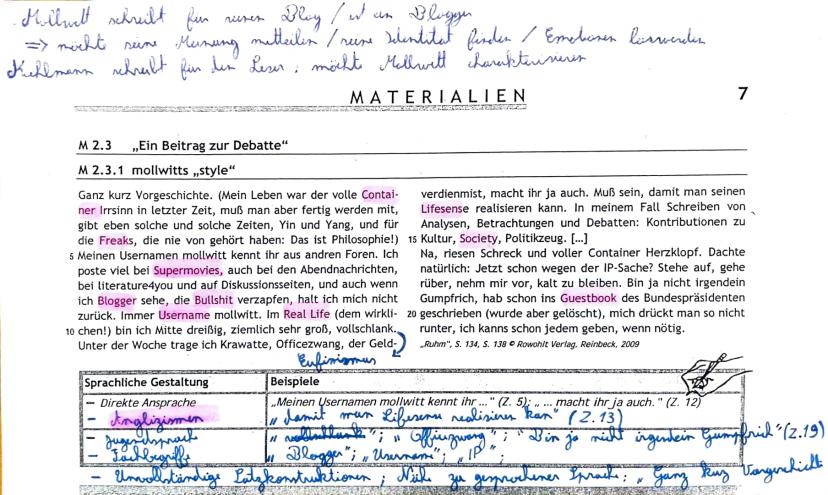 Mollwitt schreibt für seinen Blog / ist ein Blogger
=> möchte seine Meinung mitteilen / seine Identität finden / Emotionen loswerden
Kehlmann schreibt für den Leser; möchte Mollwitt charakterisieren
MATERIALIEN 7
M 2.3 „Ein Beitrag zur Debatte“
M 2.3.1 mollwitts „style“
Ganz kurz Vorgeschichte. (Mein Leben war der volle Contai-
ner Irrsinn in letzter Zeit, muß man aber fertig werden mit,
gibt eben solche und solche Zeiten, Yin und Yang, und für
die Freaks, die nie von gehört haben: Das ist Philosophie!)
5 Meinen Usernamen mollwitt kennt ihr aus andren Foren. Ich
poste viel bei Supermovies, auch bei den Abendnachrichten,
bei literature4you und auf Diskussionsseiten, und auch wenn
ich Blogger sehe, die Bullshit verzapfen, halt ich mich nicht
zurück. Immer Username mollwitt. Im Real Life (dem wirkli-
10 chen!) bin ich Mitte dreißig, ziemlich sehr groß, vollschlank.
Unter der Woche trage ich Krawatte, Officezwang, der Geld-
verdienmist, macht ihr ja auch. Muß sein, damit man seinen
Lifesense realisieren kann. In meinem Fall Schreiben von
Analysen, Betrachtungen und Debatten: Kontributionen zu
15 Kultur, Society, Politikzeug. [...]
Na, riesen Schreck und voller Container Herzklopf. Dachte
natürlich: Jetzt schon wegen der IP-Sache? Stehe auf, gehe
rüber, nehm mir vor, kalt zu bleiben. Bin ja nicht irgendein
Gumpfrich, hab schon ins Guestbook des Bundespräsidenten
20 geschrieben (wurde aber gelöscht), mich drückt man so nicht
runter, ich kanns schon jedem geben, wenn nötig.
„Ruhm“, S. 134, S. 138 © Rowohlt Verlag, Reinbeck, 2009
Eufimismus
Sprachliche Gestaltung Beispiele
— Direkte Ansprache „Meinen Usernamen mollwitt kennt ihr ...“ (Z. 5); „ ... macht ihr ja auch.“ (Z. 12)
— Anglizismen „damit man Lifesense realisieren kan“ (Z.13)
— Jugendsprache „vollschlank“; „Officezwang“; „Bin ja nicht irgendein Gumpfrich“ (Z.19)
— Fachbegriffe „Blogger“; „Username“; „IP“;
— Unvollständige Satzkonstruktionen; Nähe zu gesprochener Sprache; „Ganz kurz Vorgeschicht